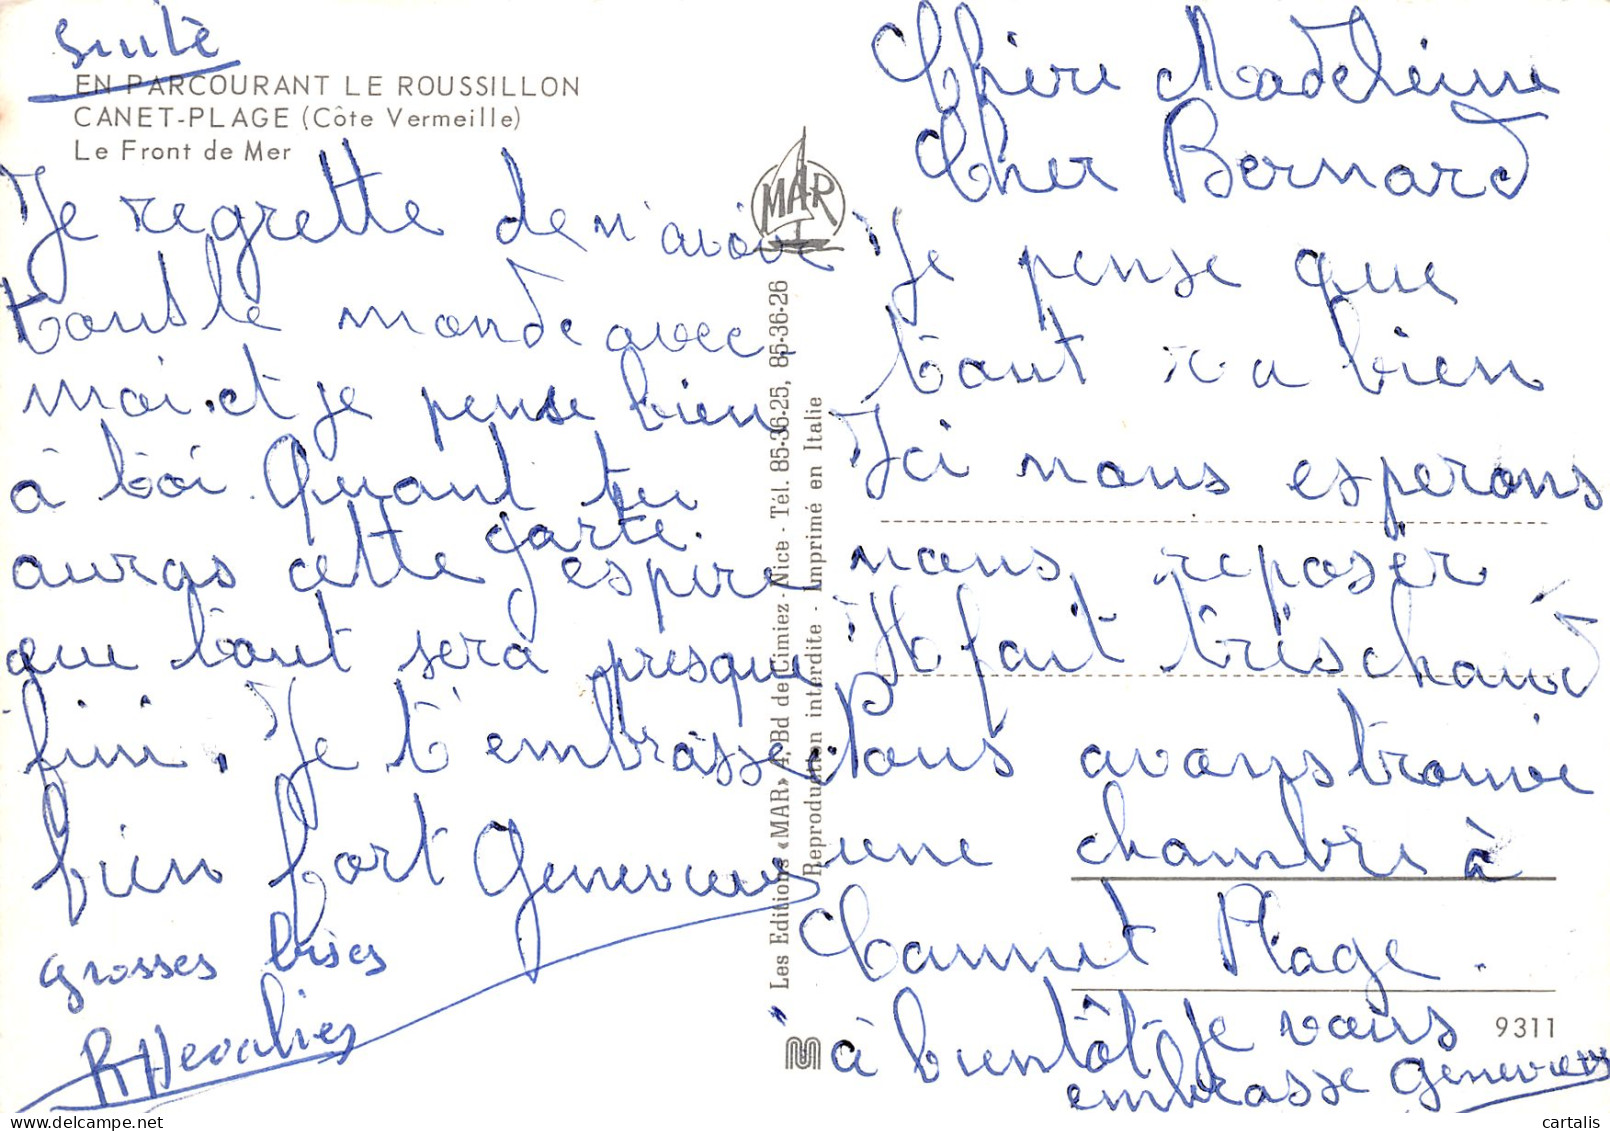 suite
EN PARCOURANT LE ROUSSILLON
CANET-PLAGE (Côte Vermeille)
Le Front de Mer
Je regrette de n'avoir
tout le monde avec
moi. et je pense bien
à toi. Quant tu
auras cette carte. espire
que tout sera presque
fini. Je t'embrasse
bien fort Genevieve
grosses bises
MAR
Les Editions «MAR» 4, Bd de Cimiez - Nice - Tél. 85-36-25, 85-36-26
Reproduction interdite - Imprimé en Italie
Chère Madeleine
Cher Bernard
Je pense que
tout va bien
Ici nous esperons
nous reposer
Il fait très chaud
Nous avons trouve
une chambre à
Cannet Plage.
à bientôt Je vous
embrasse Genevieve
9311
cartalis